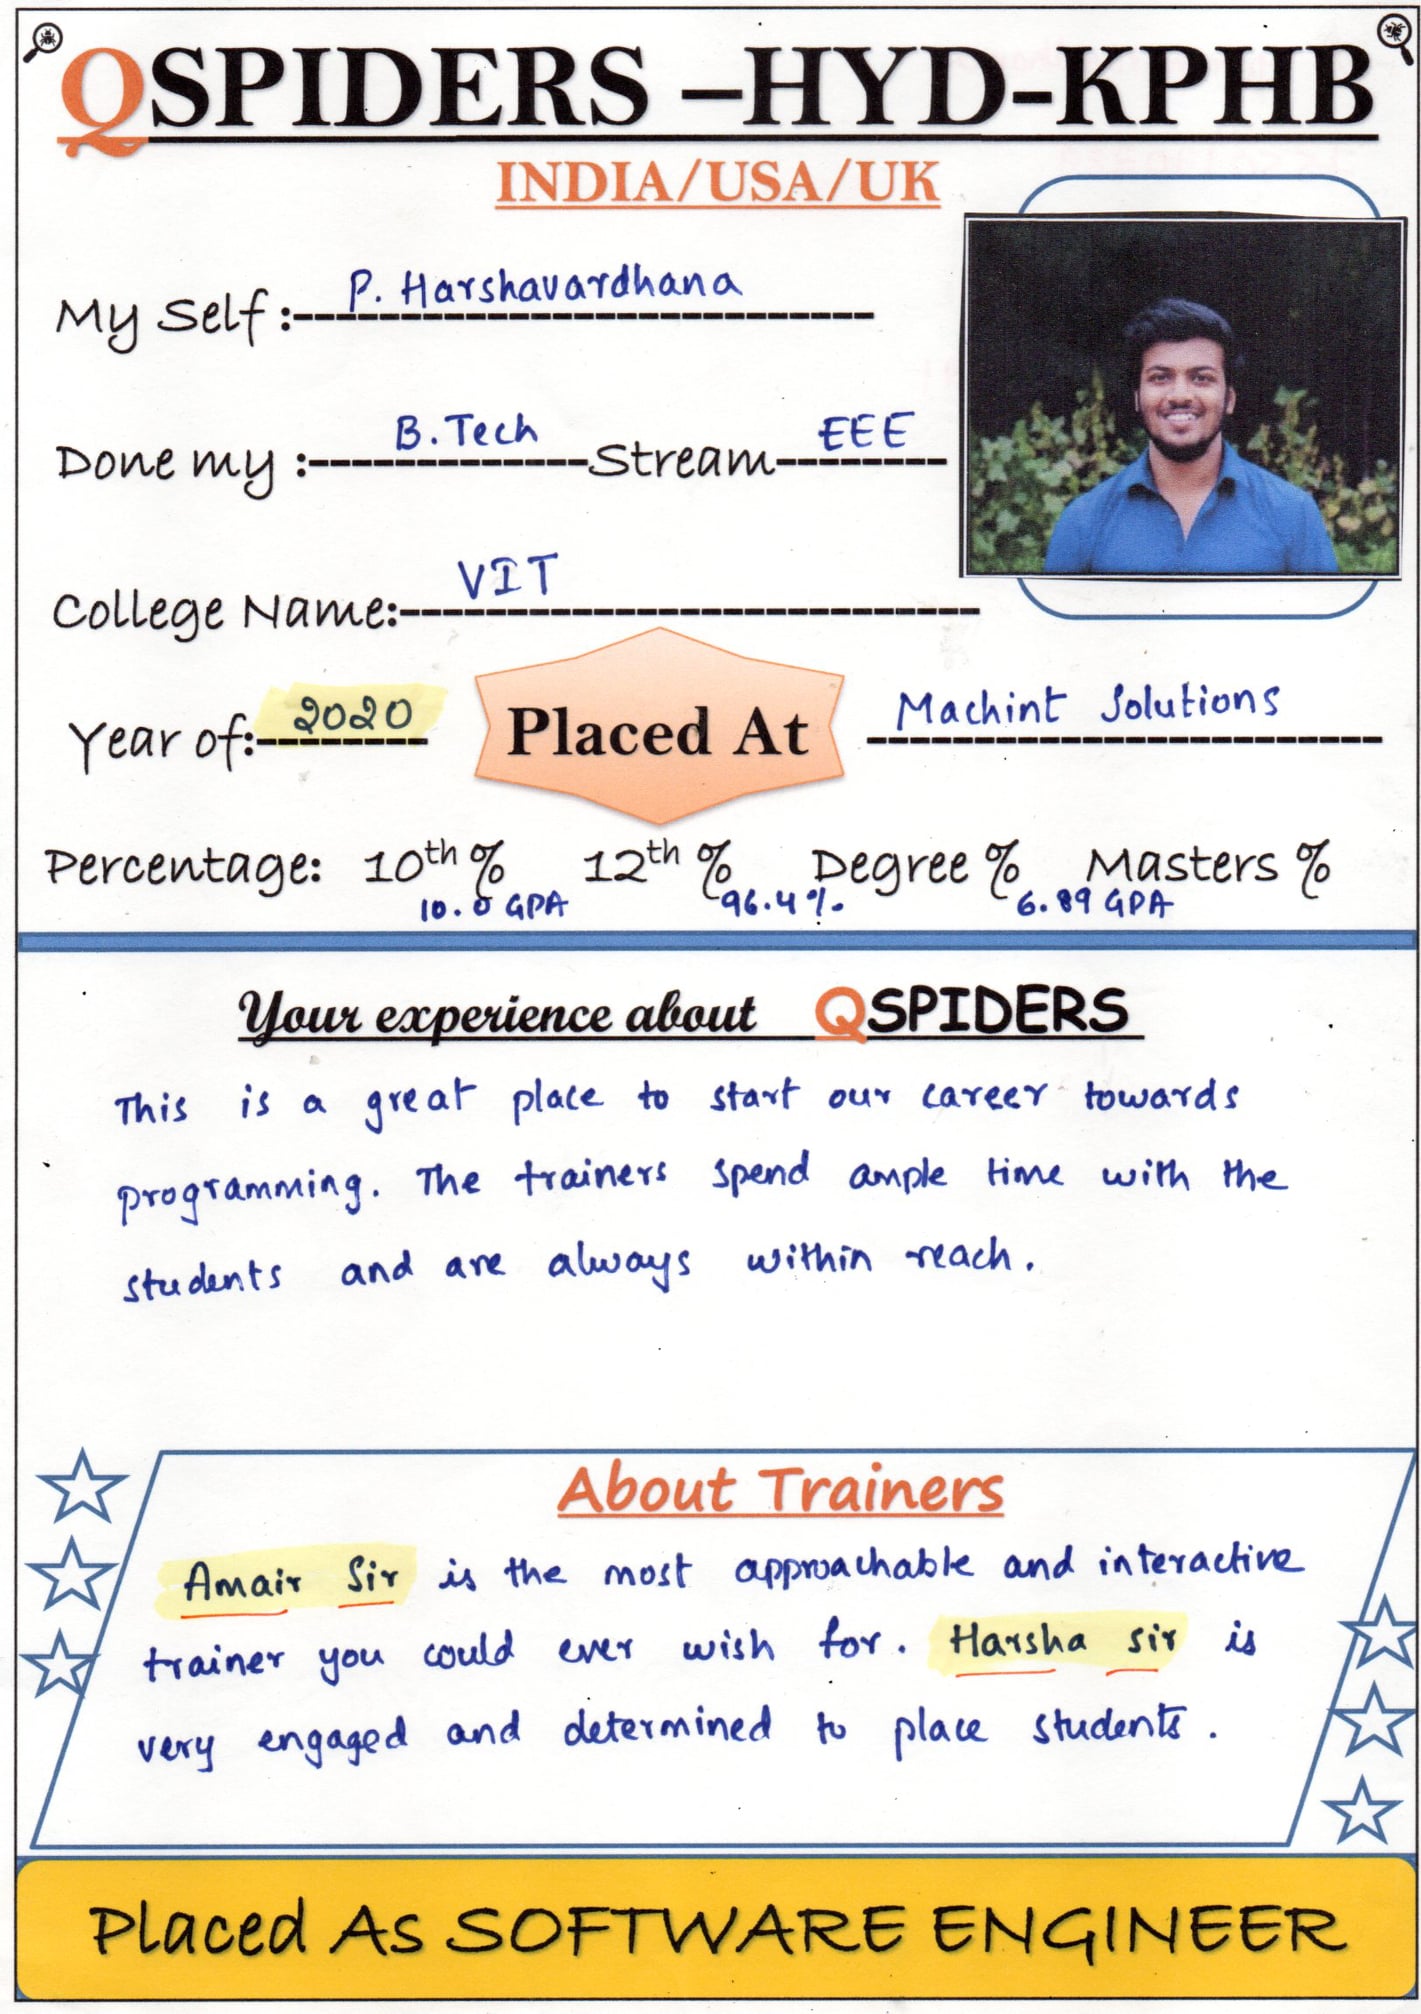 QSPIDERS –HYD-KPHB
INDIA/USA/UK
My Self : P. Harshavardhana
Done my : B.Tech Stream EEE
College Name: VIT
Year of: 2020 Placed At Machint Solutions
Percentage: 10th % 12th % Degree % Masters %
10.0 GPA 96.4% 6.89 GPA
Your experience about QSPIDERS
This is a great place to start our career towards
programming. The trainers spend ample time with the
students and are always within reach.
About Trainers
Amair Sir is the most approachable and interactive
trainer you could ever wish for. Harsha sir is
very engaged and determined to place students.
Placed As SOFTWARE ENGINEER